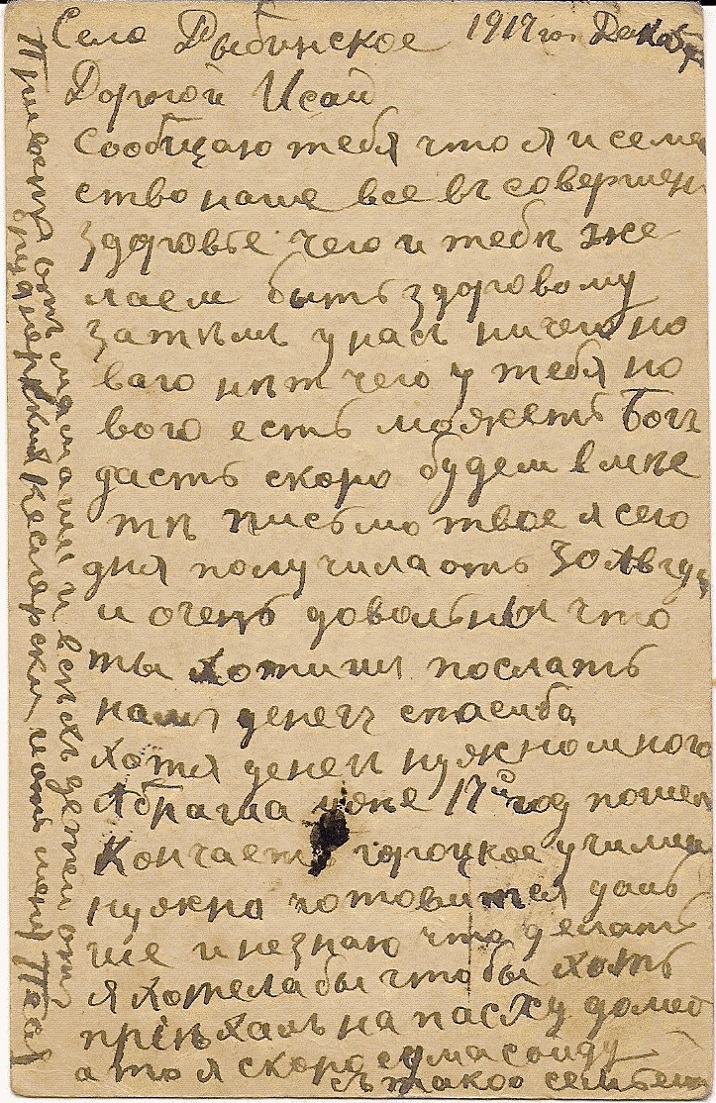 Село Рыбинское 1917 го. Декабр
Дорогой Исай
сообщаю тебя что я и семе
ство наше все въ совершен
здоровье чего и тебѣ же
лаем быть здоровому
затѣмъ у насъ ничего но
ваго нѣт чего у тебя но
вого есть можетъ Богъ
дастъ скоро будем вмѣс
тѣ письмо твое я сего
дня получила отъ 30 Авгу
и очень довольны что
ты хотишъ послать
намъ денегъ спасиба
хотя денег нужно много
Абраша уже 17й год пошел
Кончаетъ городцкое училищ
нужно готовится даль
ше и незнаю что делать
я хотела бы что бы хоть
пріѣхалъ на пасху домой
а то я скоро сума сойду
съ такой семьей
Приветъ отъ мамаши и всѣхъ детей отъ
и отъ меня